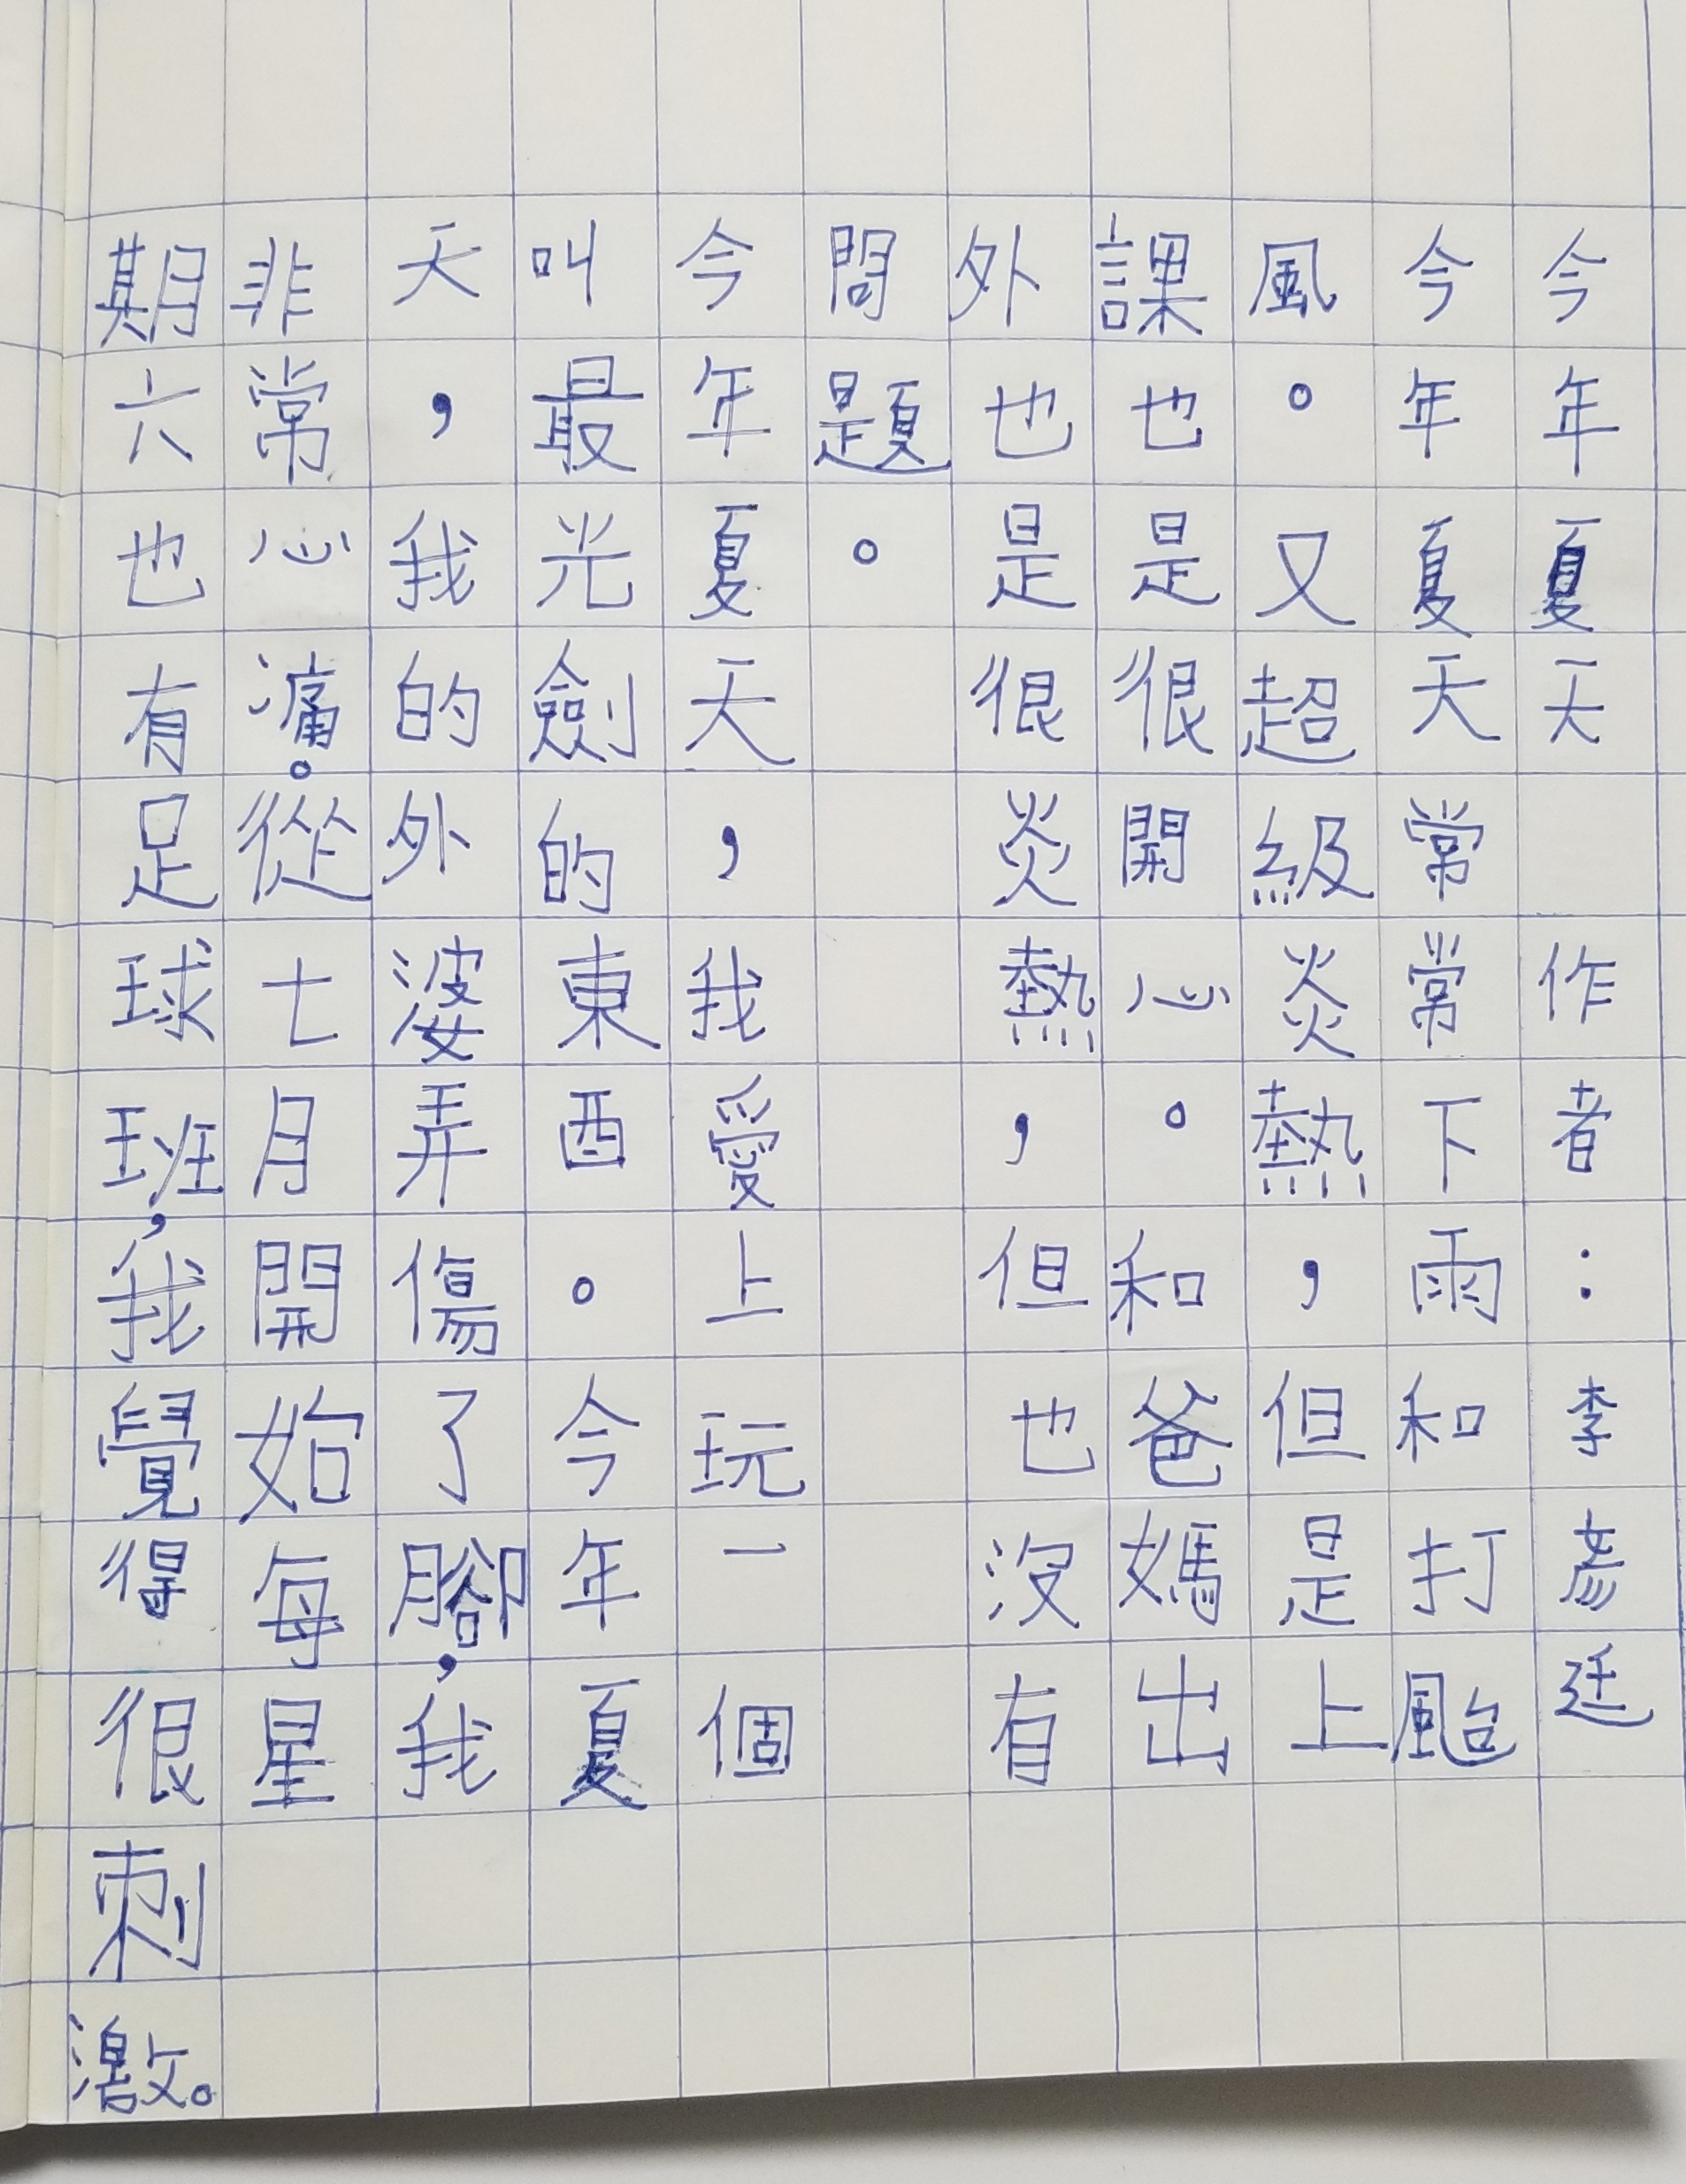 今年夏天 作者:李彥廷
今年夏天常常下雨和打颱
風。又超級炎熱,但是上
課也是很開心。和爸媽出
外也是很炎熱,但也沒有
問題。
今年夏天,我愛上玩一個
叫最光劍的東西。今年夏
天,我的外婆弄傷了腳,我
非常心痛。從七月開始每星
期六也有足球班,我覺得很刺激。